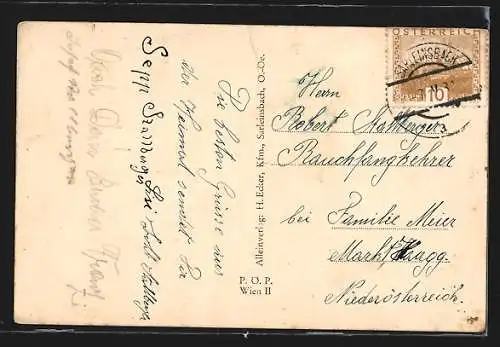 Die besten Grüsse aus
der Heimat sendet Dir
Sepp
Dein Bruder Franz
P. O. P.
Wien II
Alleinverlag: H. Ecker, Kfm., Sarleinsbach, O.-Oe.
ÖSTERREICH
SARLEINSBACH
10
Herrn
Robert
Rauchfangkehrer
bei Familie Meier
Markt Haagg.
Niederösterreich.